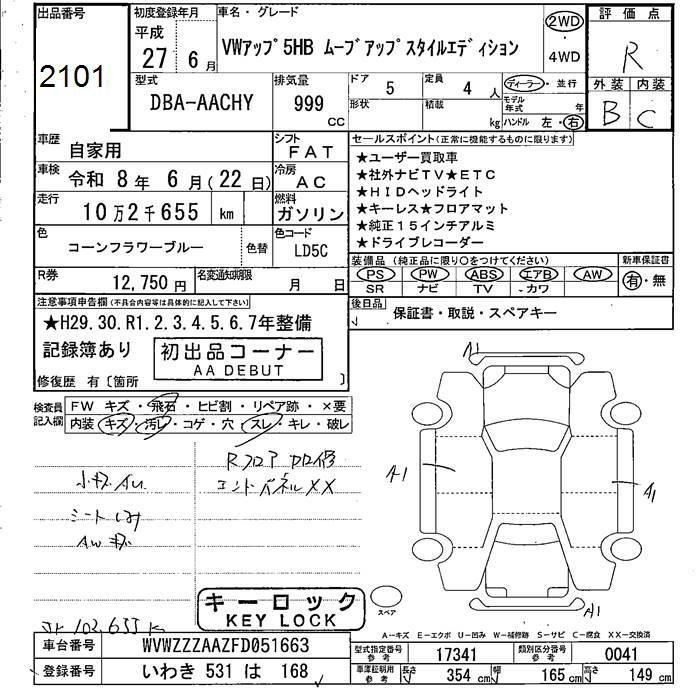 出品番号 初度登録年月 車名・グレード 評価点
2101
平成 27 年 6 月 VWアップ 5HB ムーブアップスタイルエディション 2WD・4WD R
型式 排気量 ドア 5 定員 4 人 ディーラー・並行 外装 内装
DBA-AACHY 999 CC 形状 積載 kg モデル年式 年 B C
ハンドル 左・右
車歴 自家用 シフト FAT セールスポイント(正常に機能するものに限ります)
車検 令和 8 年 6 月(22 日) 冷房 AC
★ユーザー買取車
★社外ナビTV★ETC
★HIDヘッドライト
★キーレス★フロアマット
★純正15インチアルミ
★ドライブレコーダー
走行 10万2千655 km 燃料 ガソリン
色 コーンフラワーブルー 色替 色コード LD5C
装備品(純正品に限り○をつけてください) 新車保証書
PS PW ABS エアB AW 有・無
SR ナビ TV ・カワ
R券 12,750 円 名変通知期限 月 日
後日品 保証書・取説・スペアキー
注意事項申告欄(不具合内容等は具体的に記入して下さい)
★H29.30.R1.2.3.4.5.6.7年整備
記録簿あり 初出品コーナー
AA DEBUT
修復歴 有〔箇所 〕
検査員記入欄 FW キズ・飛石・ヒビ割・リペア跡・×要
内装 キズ・汚レ・コゲ・穴・スレ・キレ・破レ
Rフロア カロ修
エンドパネルXX
小キズAu
シートしみ
AWキズ
A1
A1
A1
A1
キーロック
KEY LOCK
スペア
102,655 K
A-キズ E-エクボ U-凹み W-補修跡 S-サビ C-腐食 XX-交換済
車台番号 WVWZZZAAZFD051663 型式指定番号 参考 17341 類別区分番号 参考 0041
登録番号 いわき 531 は 168 車庫証明用 参考 長さ 354 cm 幅 165 cm 高さ 149 cm